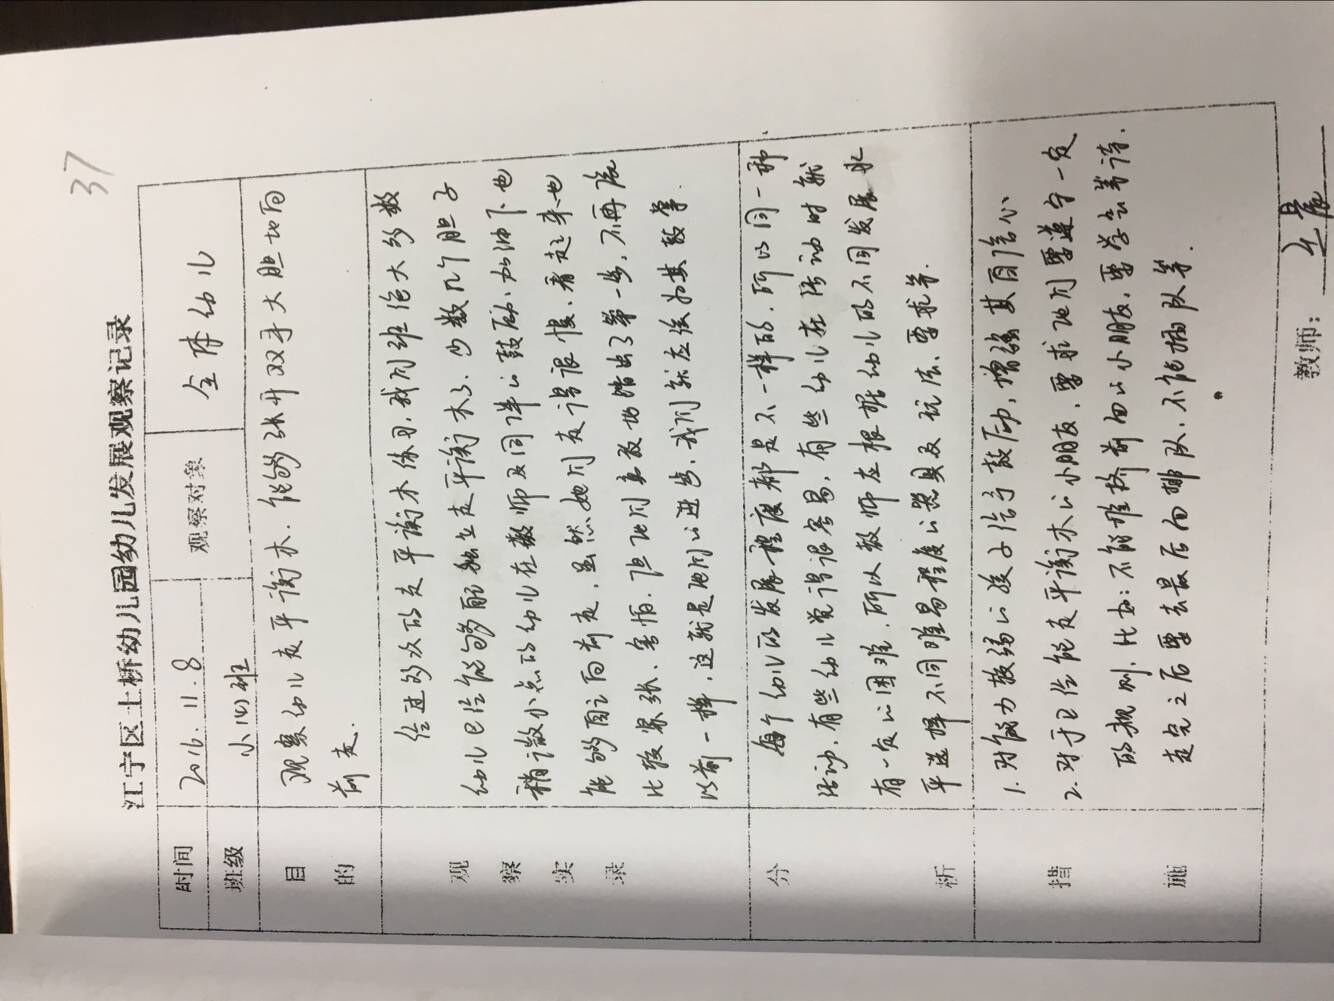 37
江宁区土桥幼儿园幼儿发展观察记录
时间 2016.11.8 观察对象 全体幼儿
班级 小(四)班
目的 观察幼儿走平衡木，能够张开双手大胆地向
前走.
观察实录
经过多次的走平衡木练习，我们班绝大多数
幼儿已经能够独立走平衡木了，少数几个胆子
稍微小点的幼儿在教师及同伴的鼓励、加油下也
能够自己向前走，虽然她们走得很慢，看起来也
比较紧张、害怕，但他们勇敢地踏出了第一步，不再像
以前一样，这就是他们的进步，我们就应该为其鼓掌.
分析
每个幼儿的发展程度都是不一样的，所以同一种
活动，有些幼儿觉得很容易，有些幼儿在活动时就
有一定的困难，所以教师应根据幼儿的不同发展水
平选择不同难易程度的器具及玩法、要求等.
措施
1. 对能力较弱的孩子给予鼓励，增强其自信心
2. 对于已经能走平衡木的小朋友，要求他们要遵守一定
的规则，比如：不能推挤前面的小朋友，要学会等待.
走完之后要去最后面排队，不能插队等.
教师：